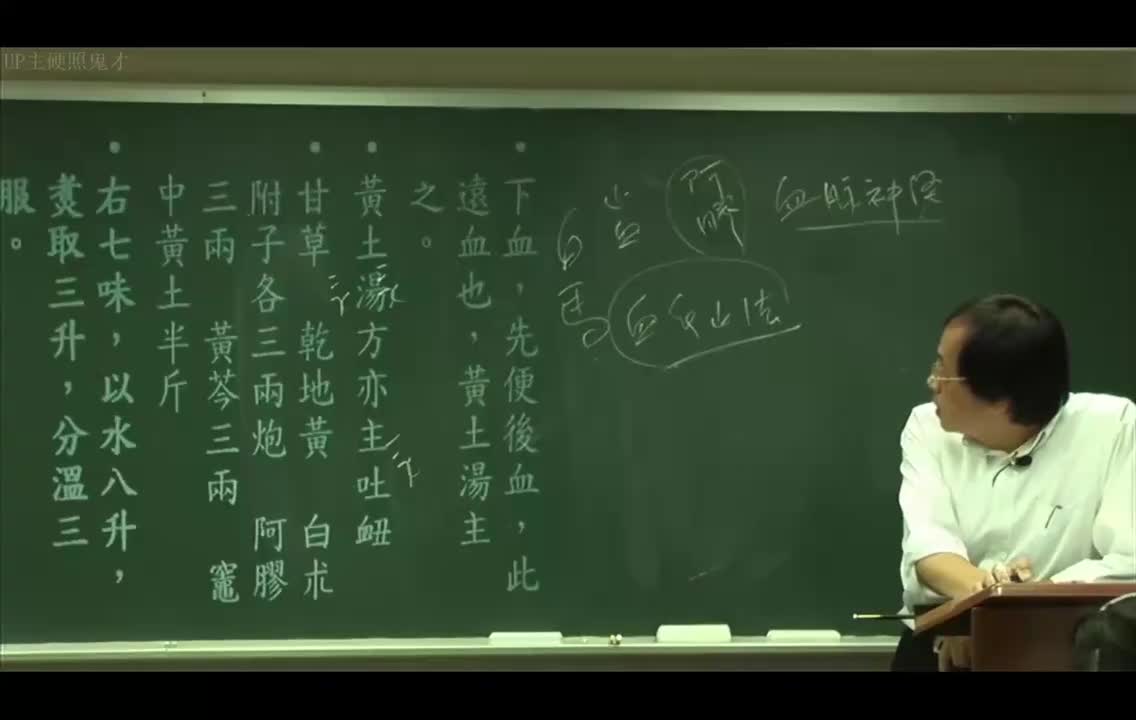 UP主硬照鬼才
血脈神經
阿膠
止血
白
馬
血年止法
• 下血，先便後血，此
遠血也，黃土湯主
之。
• 黃土湯方亦主吐衄
• 甘草　乾地黃　白朮
附子各三兩炮　阿膠
三兩　黃芩三兩　竈
中黃土半斤
• 右七味，以水八升，
煑取三升，分溫三
服。